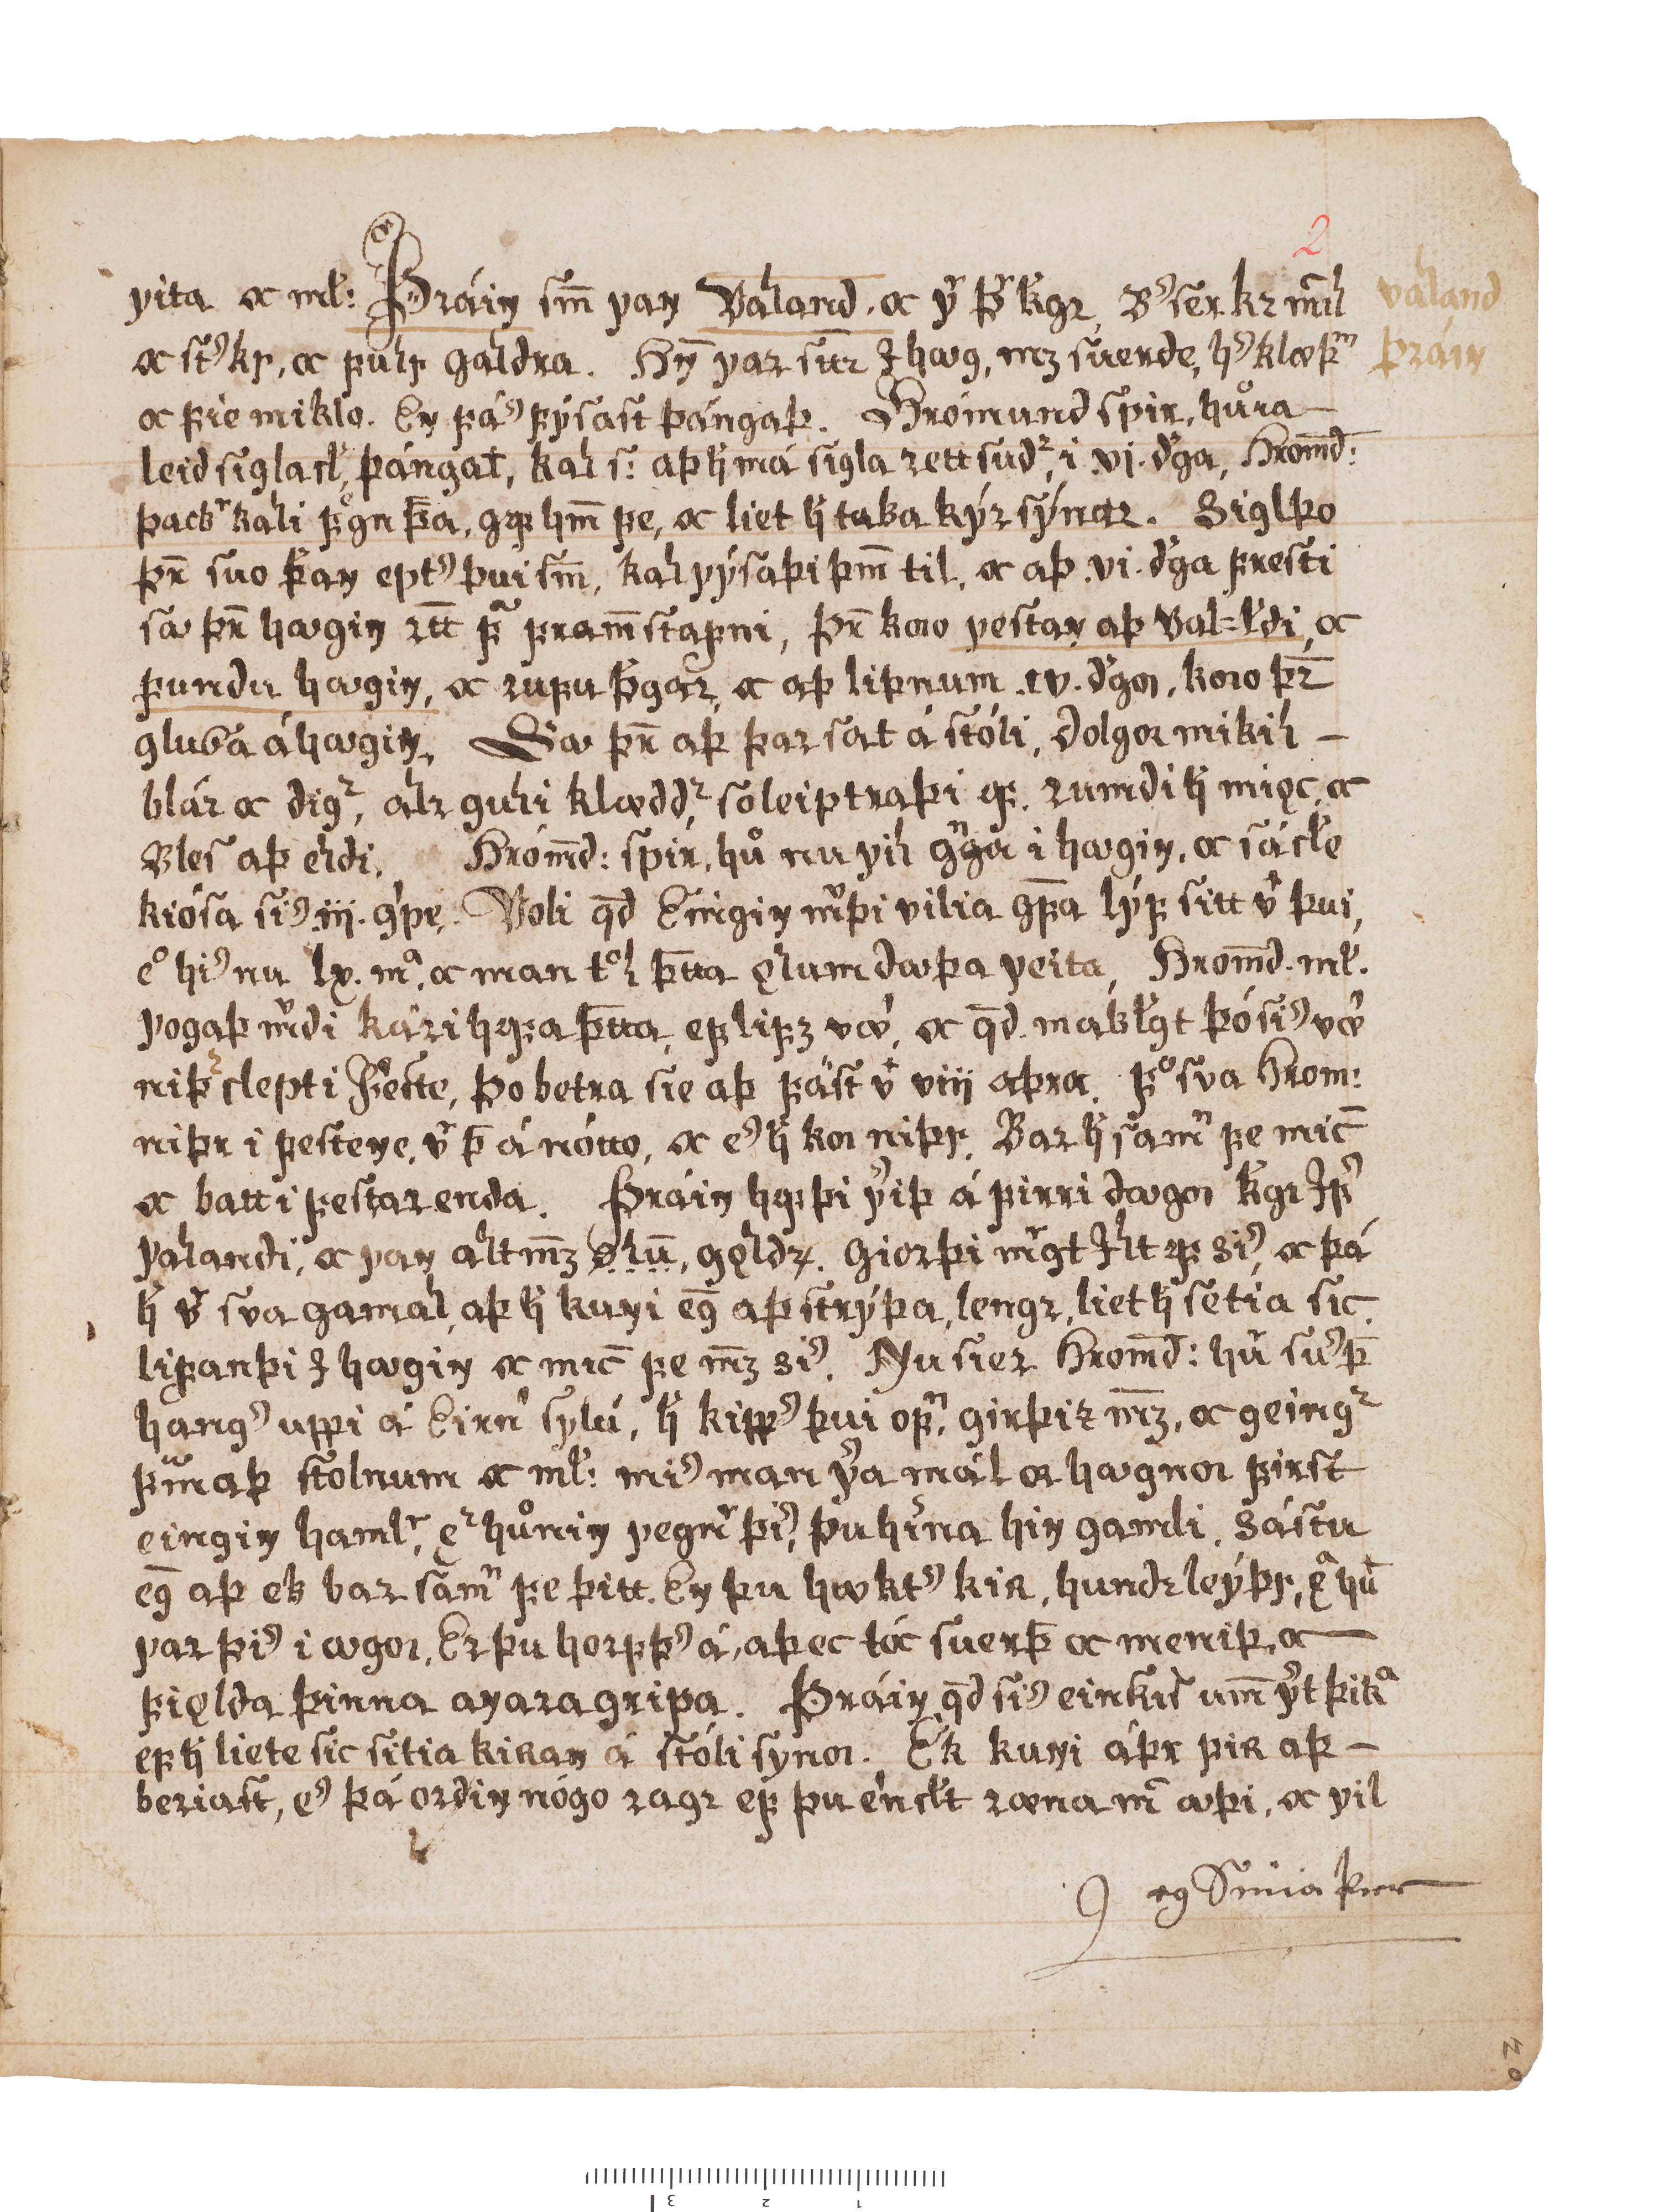 2
vita oc ml̅: Þráin sm̅ van Valand. oc v̾ þ̾ k̅gr, B᾽serkr mıkıl
valand
oc st᾽kr, oc fullr galdra. Hn̅ var settr J haug, mꝫ suerde, h᾽klæþ
þráin
oc fie miklo. En fá᾽ fýsast þángaþ. Hrómund spir, huͦra
leid sigla sk̅, þángat, kall s: aþ h̅ má sigla rett sudr, i vj. d̅ga, Hromd̅:
þackr kalli f̊gn þ̅a, gaf hm̅ fe, oc liet h̅ taka kýr sýnar. Siglþo
þr̅ suo þ̅an ept᾽ þui sm̅, kall výsaþi þm̅ til, oc aþ vi. d̅ga fresti
sa þr̅ haugin rtt̅ f̅ framstafni, þr̅ koo vestan aþ Val=l̅di, oc
fundu haugin, oc rufu þ̅gar, oc aþ liþnum .iv. d̅gom, komo þr̅
glugga á haugin, Sa þr̅ aþ þar sat á stóli, dolgor mikill
blár oc digr, allr gulli klæddr, so leiptraþi af. rumdi h̅ mioc, oc
Bles aþ elldi. Hrómd̅: spir, hu̍ nu vill ganga i haugin, oc sá sk̅le
kiósa si᾽ .iij. g̍pe. Voli qd̅ Eingin m̅þi vilia gefa lýf sitt v̍ þui,
e̊ hi᾽ nu lx. m̅. oc man t̊l þ̅tta ollum dauþa veita, Hromd̅. ml̅.
vogaþ m̅di kári hafa þ̅tta, ef lifꝫ væ̍, oc qd̅ makl̅gt þó si᾽ væ̍
niþr slept i festi, þo betra sie aþ fást v̍ viij aþra. F̊ sva Hrom:
niþr i festene, v̍ þ̅ á nótto, oc e᾽ h̅ kom niþr, Bar h̅ saman fe mic̅
oc batt i festar enda. Þráin hafþi v᾽iþ á firri daugom k̅gr Jf᾽
Valandi, oc van allt mꝫ ollū, goldr. Giorþi m̅gt Jllt af si᾽, oc þá
h̅ v̍ sva gamall, aþ h̅ kunni eg̅ aþ strýþa, lengr, liet h̅ setia sic
lifanþi J haugin oc mic̅ fe mꝫ si᾽. Nu sier Hromd̅: hu̍ su᾽þ̅
hang᾽ uppi á Einni sylu, h̅ kipp᾽ þui ofan, girþir mꝫ, oc geingr
fm̅ aþ stolnum oc ml̅: mi᾽ man v᾽a mál or haugnom first
eingin hamlr, eͬ huͦnin vegnr þi᾽, þu hi̍na hin gamli. Sástu
eg̅ aþ ek bar saman fe þitt. En þu haukt᾽ kir, hundr leýþr, e̅ hu̍
var þi᾽ i augom, Er þu horfþ᾽ á, aþ ec tóc suerþ oc meniþ, oc
fiolda þinna anara gripa. Þráin qd̅ si᾽ einkis umm v᾽t þikia
ef h̅ liete sic sitia kiran á stóli synom. Ek kunni áþr fir aþ
beriast, e᾽ þá ordin nógo ragr ef þu einsl̅t ræna mic auþi, oc vil
eg Sinia þier